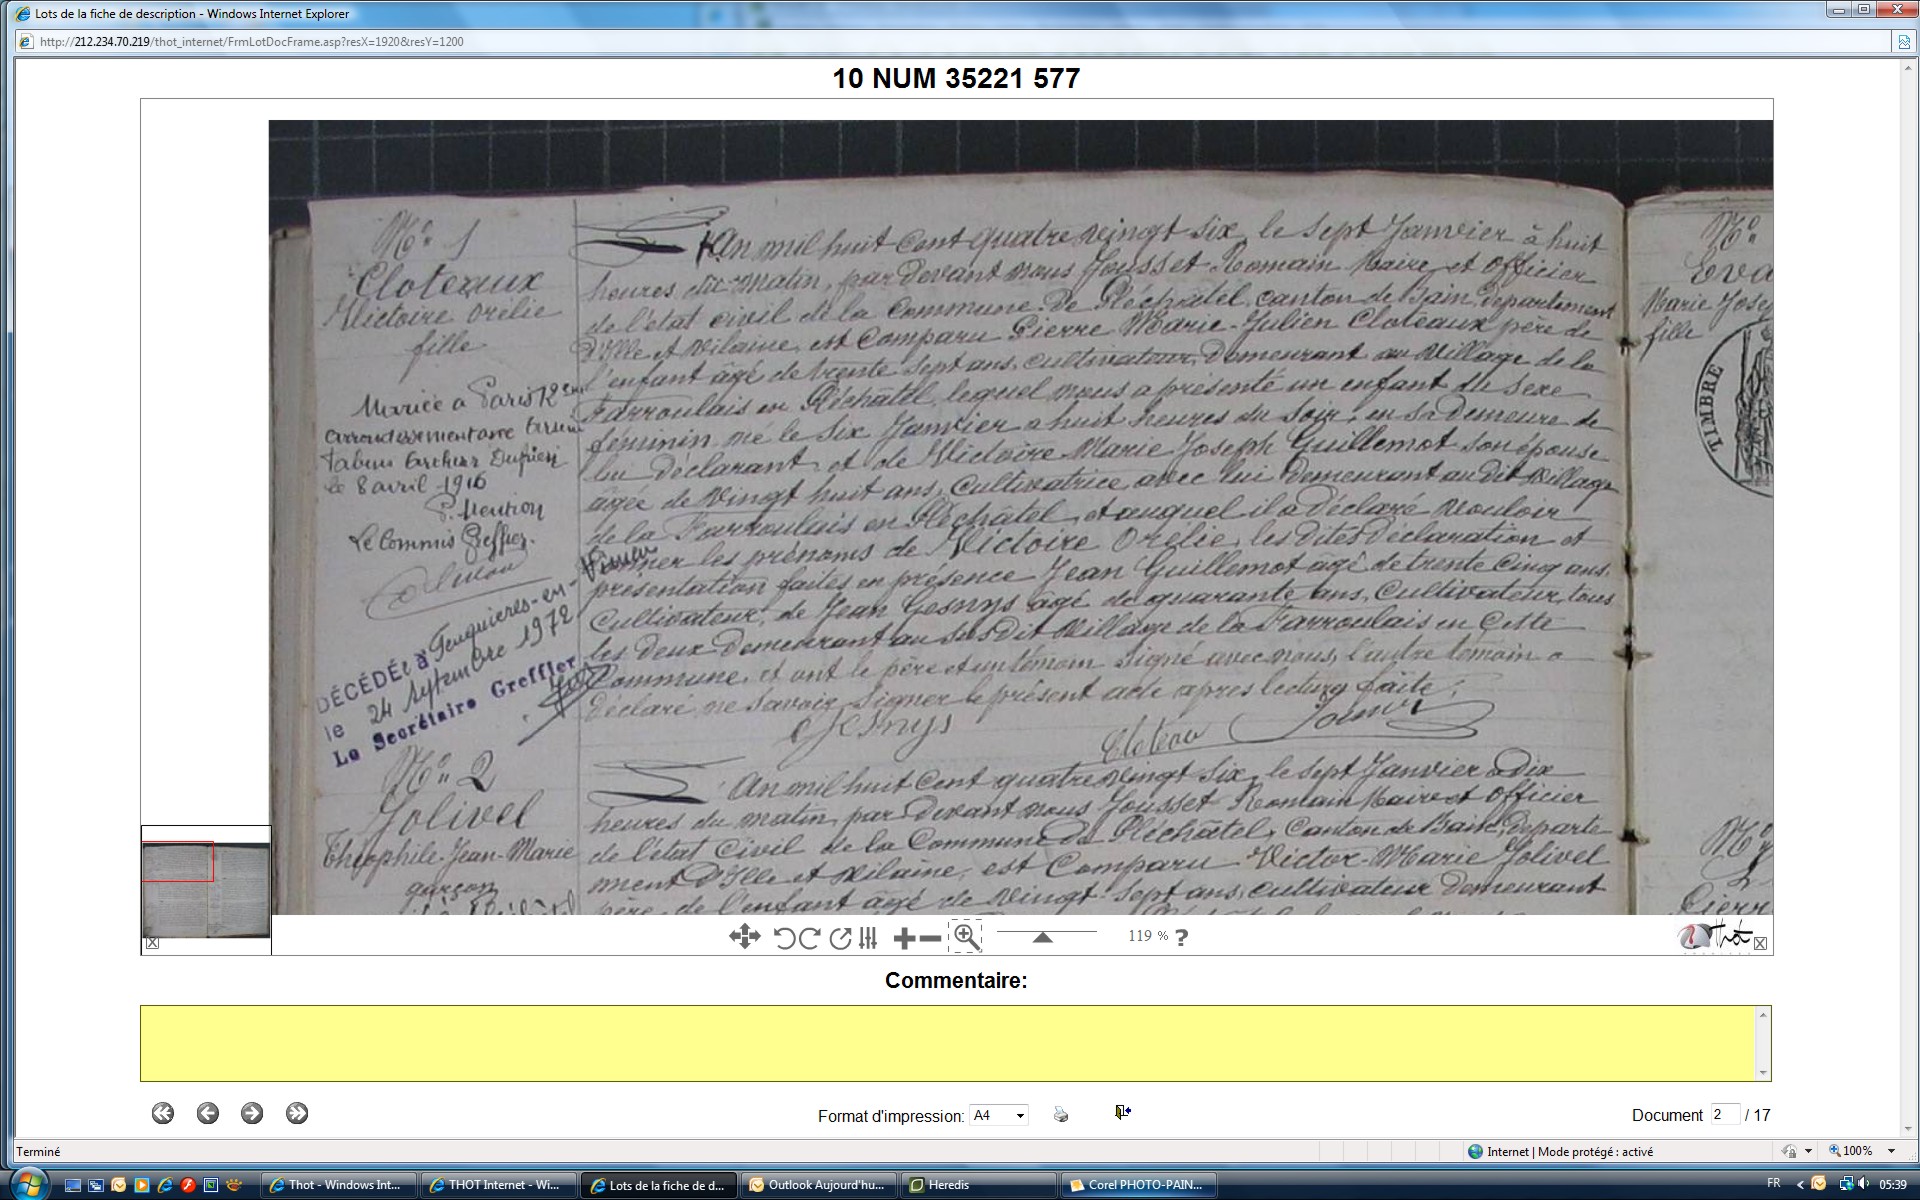 Lots de la fiche de description - Windows Internet Explorer
http://212.234.70.219/thot_internet/FrmLotDocFrame.asp?resX=1920&resY=1200
10 NUM 35221 577
N° 1
Cloteaux
Victoire Orélie
fille
Mariée à Paris 12em
arrondissement avec
le 8 avril 1916
P. Mention
Le Commis Greffier.
DÉCÉDÉE à Feuquières-en-Vimeu
le 24 Septembre 1972
Le Secrétaire Greffier
L'An mil huit cent quatre vingt six, le sept Janvier à huit
heures du matin, par devant nous Jousset Romain Maire et officier
de l'état civil de la Commune de Pléchâtel, canton de Bain, département
d'Ille et Vilaine, est Comparu Pierre Marie Julien Cloteaux père de
l'enfant âgé de trente sept ans, cultivateur, demeurant au village de la
Farroulais en Pléchâtel, lequel nous a présenté un enfant du sexe
féminin, né le six Janvier à huit heures du soir, en sa demeure de
lui déclarant et de Victoire Marie Joseph Guillemot son épouse
âgée de vingt huit ans, cultivatrice avec lui demeurant au dit village
de la Farroulais en Pléchâtel, et auquel il a déclaré vouloir
donner les prénoms de Victoire Orélie, les dites déclaration et
présentation faites en présence Jean Guillemot âgé de trente cinq ans,
Cultivateur, de Jean Gesnys âgé de quarante ans, cultivateur, tous
les deux demeurant au susdit village de la Farroulais en cette
Commune, et ont le père et un témoin signé avec nous, l'autre témoin a
déclaré ne savoir signer le présent acte après lecture faite;
Gesnys
Cloteau
N° 2
Jolivel
Théophile-Jean-Marie
garçon
L'An mil huit cent quatre vingt six, le sept Janvier à dix
heures du matin, par devant nous Jousset Romain Maire et officier
de l'état Civil de la Commune de Pléchâtel, Canton de Bain, départe
ment d'Ille et Vilaine, est Comparu Victor-Marie Jolivel
père de l'enfant âgé de vingt-sept ans, cultivateur demeurant
N°
Eva
Marie Josep
fille
TIMBRE
N°
Pierr
119 % ?
Thot
Commentaire:
Format d'impression: A4
Document 2 / 17
Terminé
Internet | Mode protégé : activé
100%
Thot - Windows Int...
THOT Internet - Wi...
Lots de la fiche de d...
Outlook Aujourd'hu...
Heredis
Corel PHOTO-PAIN...
FR
05:39